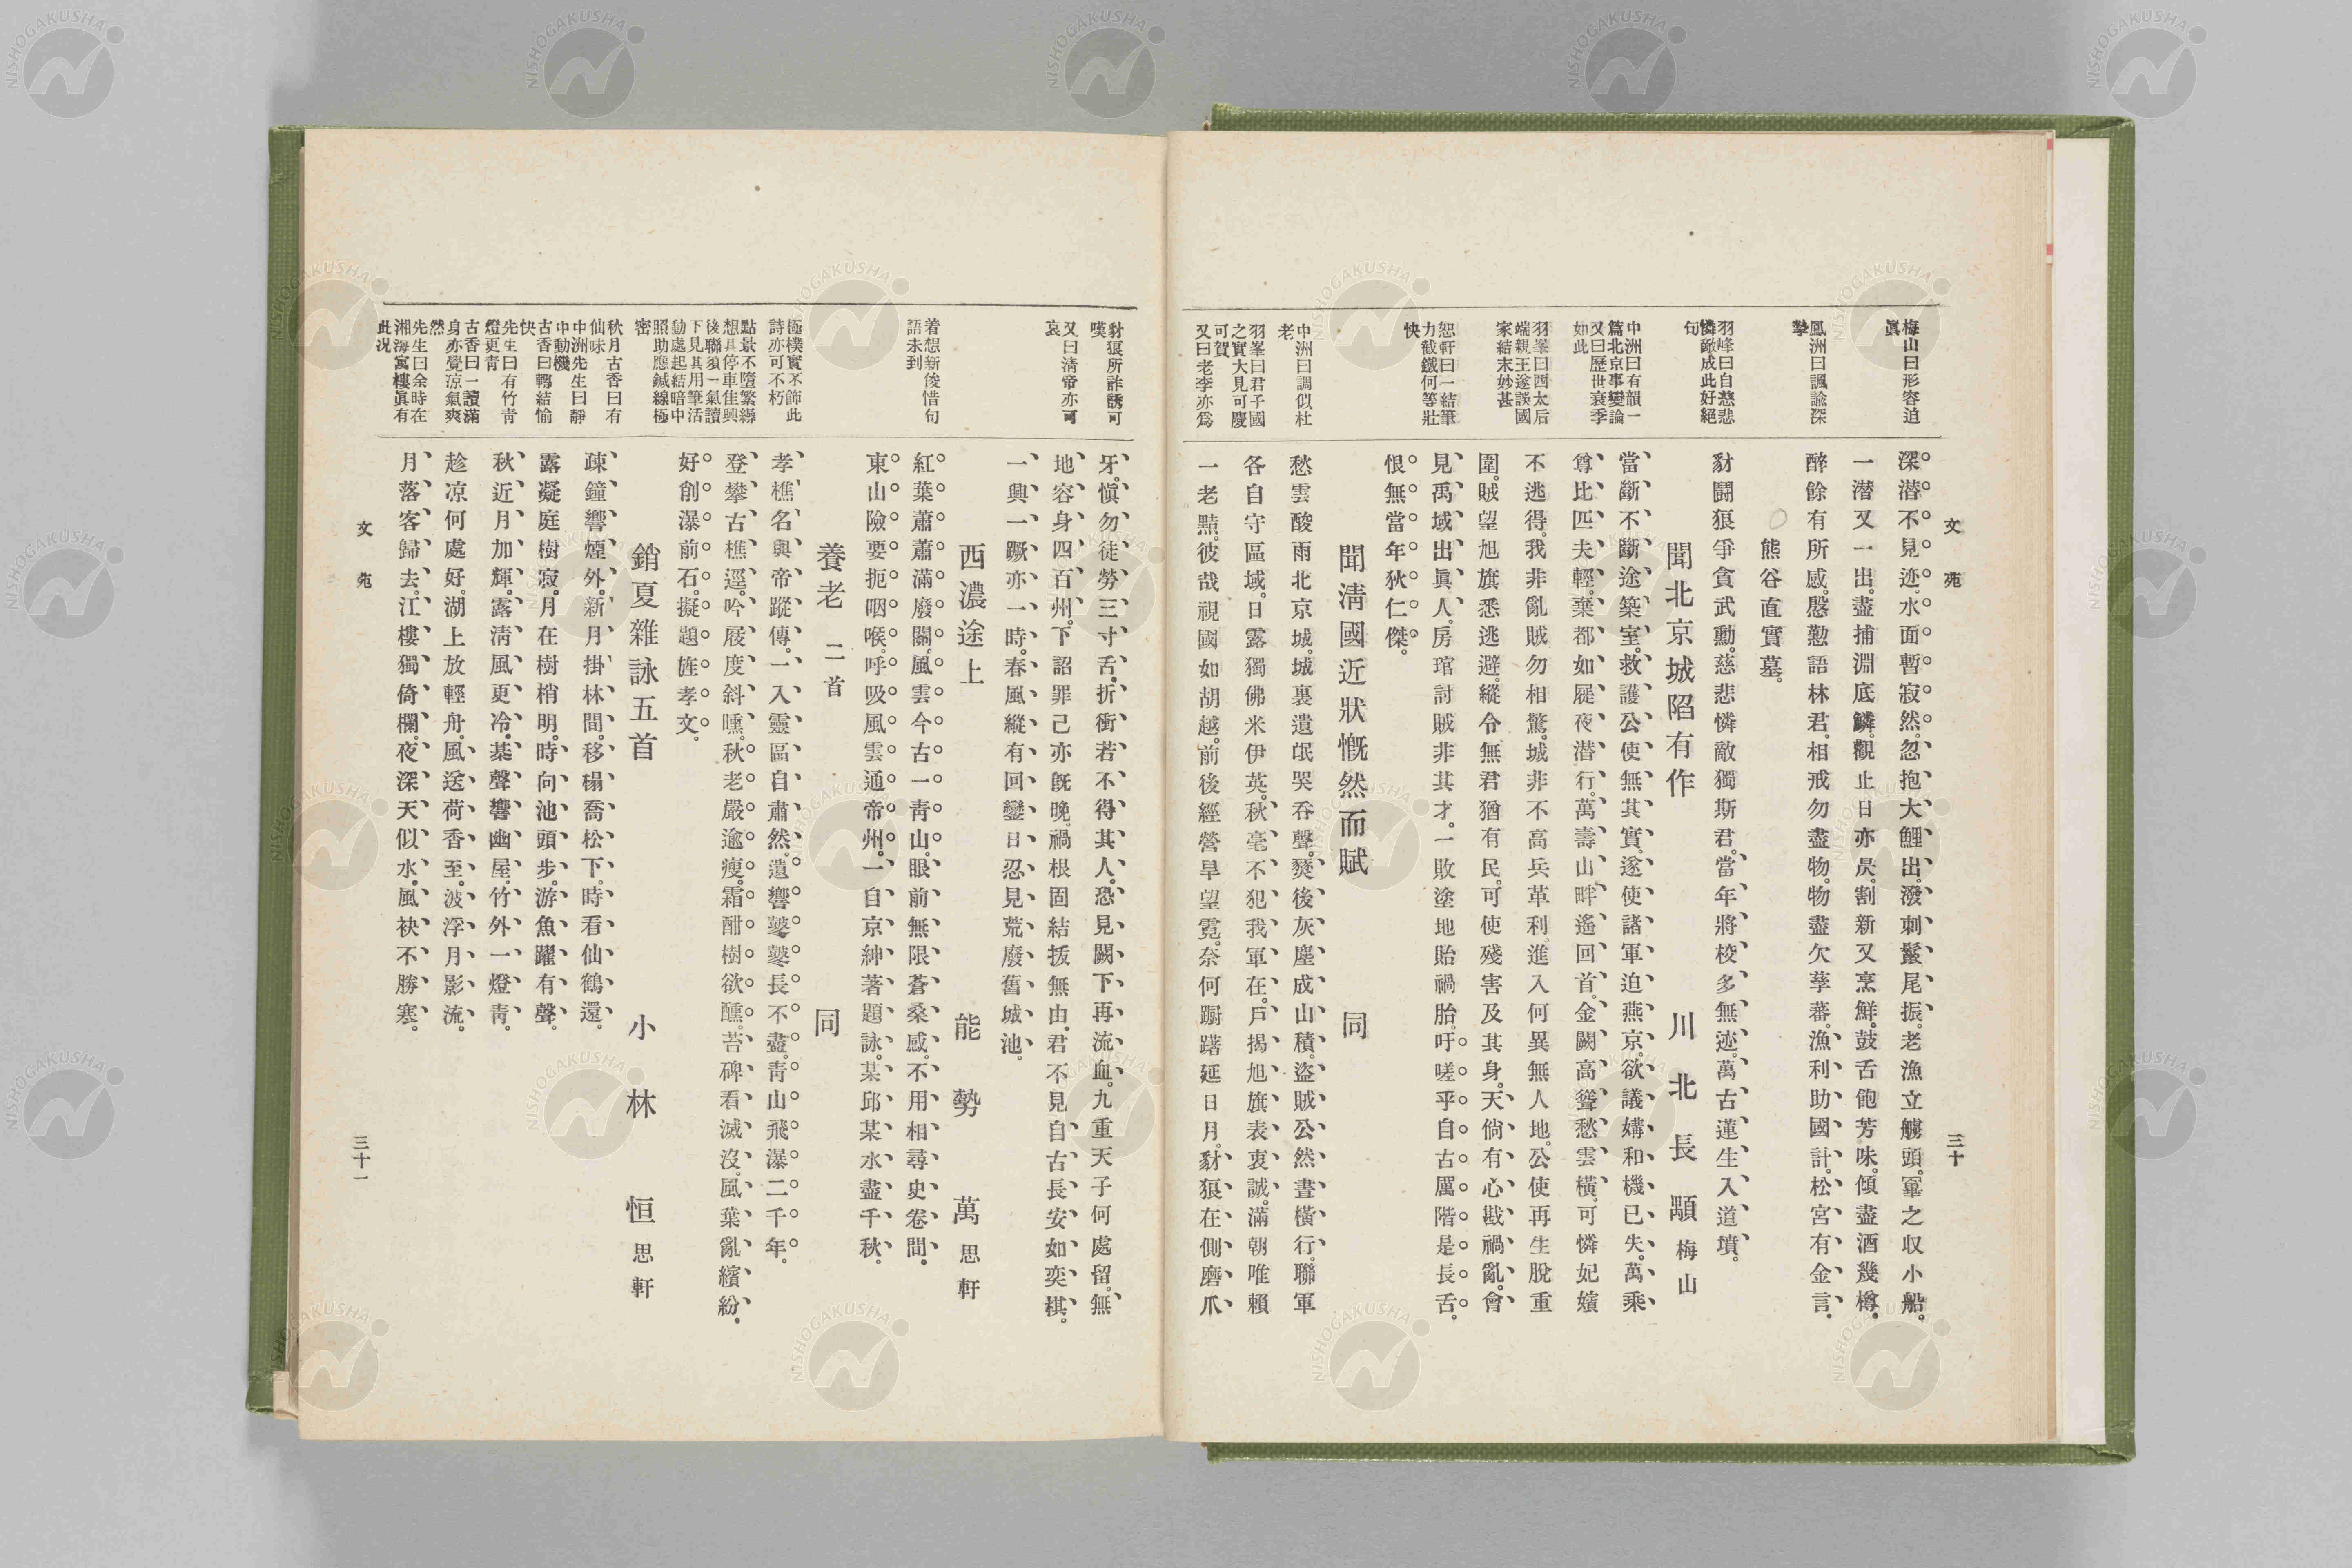 文苑
三十
梅山曰形容迫
眞
鳳洲曰諷諭深
摯
羽峰曰自慈悲
憐敵成此好絕
句
中洲曰有韻一
篇北京事變論
又曰歷世衰季
如此
羽峯曰西太后
端親王遂誤國
家結末妙甚
恕軒曰一結筆
力截鐵何等壯
快
中洲曰調似杜
老
羽峯曰君子國
之實大見可慶
可賀
又曰老李亦爲
深潜不見迹。水面暫寂然。忽抱大鯉出。潑刺鬣尾振。老漁立艣頭。罩之収小船。
一潜又一出。盡捕淵底鱗。觀止日亦昃。割新又烹鮮。鼓舌飽芳味。傾盡酒幾樽。
醉餘有所感。慇懃語林君。相戒勿盡物。物盡欠孳蕃。漁利助國計。松宮有金言。
熊谷直實墓。
豺鬪狼爭貪武勳。慈悲憐敵獨斯君。當年將校多無迹。萬古蓮生入道墳。
聞北京城陷有作
川北長顒梅山
當斷不斷途築室。救護公使無其實。遂使諸軍迫燕京。欲議媾和機已失。萬乘
尊比匹夫輕。棄都如屣夜潜行。萬壽山畔遙回首。金闕高聳愁雲橫。可憐妃嬪
不逃得。我非亂賊勿相驚。城非不高兵革利。進入何異無人地。公使再生脫重
圍。賊望旭旗悉逃避。縱令無君猶有民。可使殘害及其身。天倘有心戡禍亂。會
見禹域出眞人。房琯討賊非其才。一敗塗地貽禍胎。吁嗟乎自古厲階是長舌。
恨無當年狄仁傑。
聞淸國近狀慨然而賦
同
愁雲酸雨北京城。城裏遺氓哭吞聲。燹後灰塵成山積。盜賊公然晝橫行。聯軍
各自守區域。日露獨佛米伊英。秋毫不犯我軍在。戶揭旭旗表衷誠。滿朝唯賴
一老黠。彼哉視國如胡越。前後經營旱望霓。奈何躕躇延日月。豺狼在側磨爪
豺狼所詐誘可
嘆
又曰淸帝亦可
哀
着想新俊惜句
語未到
極樸實不飾此
詩亦可不朽
點景不墮繁縟
想具停車佳興
後聯須一氣讀
下見其用筆活
動處起結暗中
照助應鍼線極
密
秋月古香曰有
仙味
中洲先生曰靜
中動機
古香曰轉結愉
快
先生曰有竹靑
燈更靑
古香曰一讀滿
身亦覺涼氣爽
然
先生曰余時在
湘海寓樓眞有
此况
牙。愼勿徒勞三寸舌。折衝若不得其人。恐見闕下再流血。九重天子何處留。無
地容身四百州。下詔罪己亦旣晩。禍根固結拔無由。君不見自古長安如奕棋。
一興一蹶亦一時。春風縱有回鑾日。忍見荒廢舊城池。
西濃途上
能勢萬思軒
紅葉蕭蕭滿廢關。風雲今古一靑山。眼前無限蒼桑感。不用相尋史卷間。
東山險要扼咽喉。呼吸風雲通帝州。一自京紳著題詠。某邱某水盡千秋。
養老二首
同
孝樵名與帝蹤傳。一入靈區自肅然。遺響鼕鼕長不盡。靑山飛瀑二千年。
登攀古樵逕。吟屐度斜曛。秋老巖逾瘦。霜酣樹欲醺。苔碑看滅沒。風葉亂繽紛。
好創瀑前石。擬題旌孝文。
銷夏雜詠五首
小林恒思軒
疎鐘響煙外。新月掛林間。移榻喬松下。時看仙鶴還。
露凝庭樹寂。月在樹梢明。時向池頭步。游魚躍有聲。
秋近月加輝。露淸風更冷。棊聲響幽屋。竹外一燈靑。
趁凉何處好。湖上放輕舟。風送荷香至。波浮月影流。
月落客歸去。江樓獨倚欄。夜深天似水。風袂不勝寒。
文苑
三十一